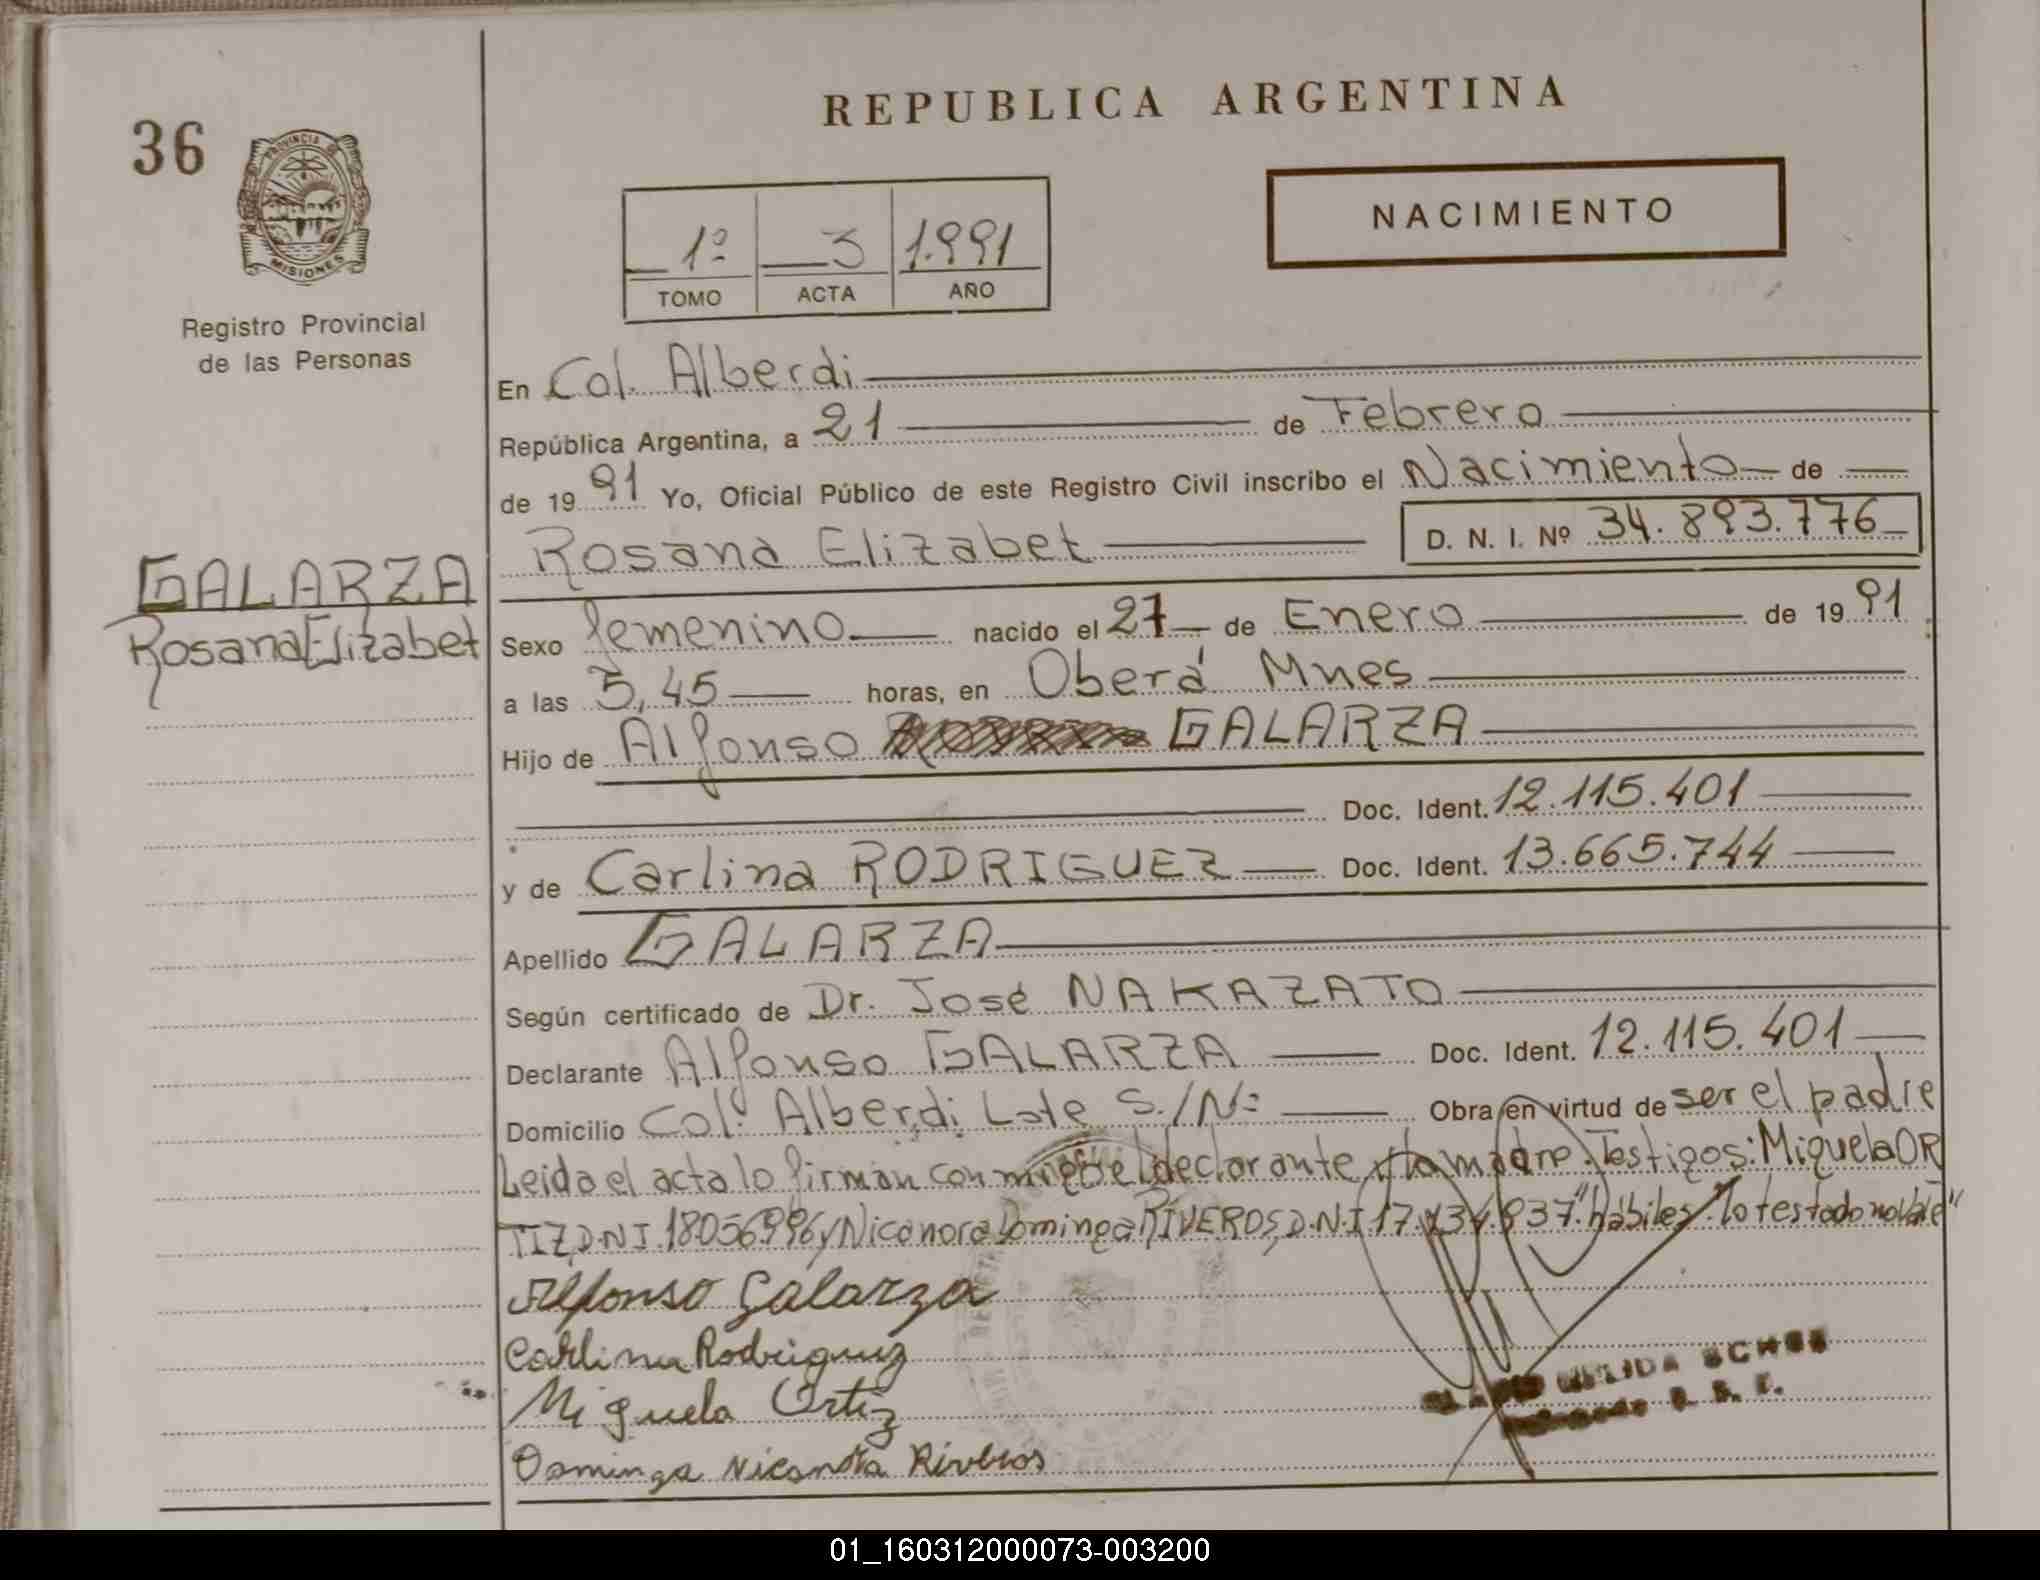 REPUBLICA ARGENTINA
36
PROVINCIA DE
MISIONES
NACIMIENTO
1º 3 1.991
TOMO ACTA AÑO
Registro Provincial
de las Personas
En Col. Alberdi
República Argentina, a 21 de Febrero
de 1991 Yo, Oficial Público de este Registro Civil inscribo el Nacimiento de
Rosana Elizabet D. N. I. Nº 34.893.776
GALARZA
Rosana Elizabet
Sexo femenino nacido el 27 de Enero de 1991
a las 5,45 horas, en Oberá Mnes
Hijo de Alfonso GALARZA
Doc. Ident. 12.115.401
y de Carlina RODRIGUEZ Doc. Ident. 13.665.744
Apellido GALARZA
Según certificado de Dr. José NAKAZATO
Declarante Alfonso GALARZA Doc. Ident. 12.115.401
Domicilio Colº Alberdi Lote S./Nº Obra en virtud de ser el padre
Leida el acta lo firman con migo el declarante y la madre. Testigos: Miguela OR
TIZ, D.N.I. 18056996 y Nicanora Dominga RIVEROS, D.N.I 17. "hábiles. "lo testado no vale"
Alfonso Galarza
Carlina Rodriguez
Miguela Ortiz
Dominga Nicanora Riveros
01_160312000073-003200